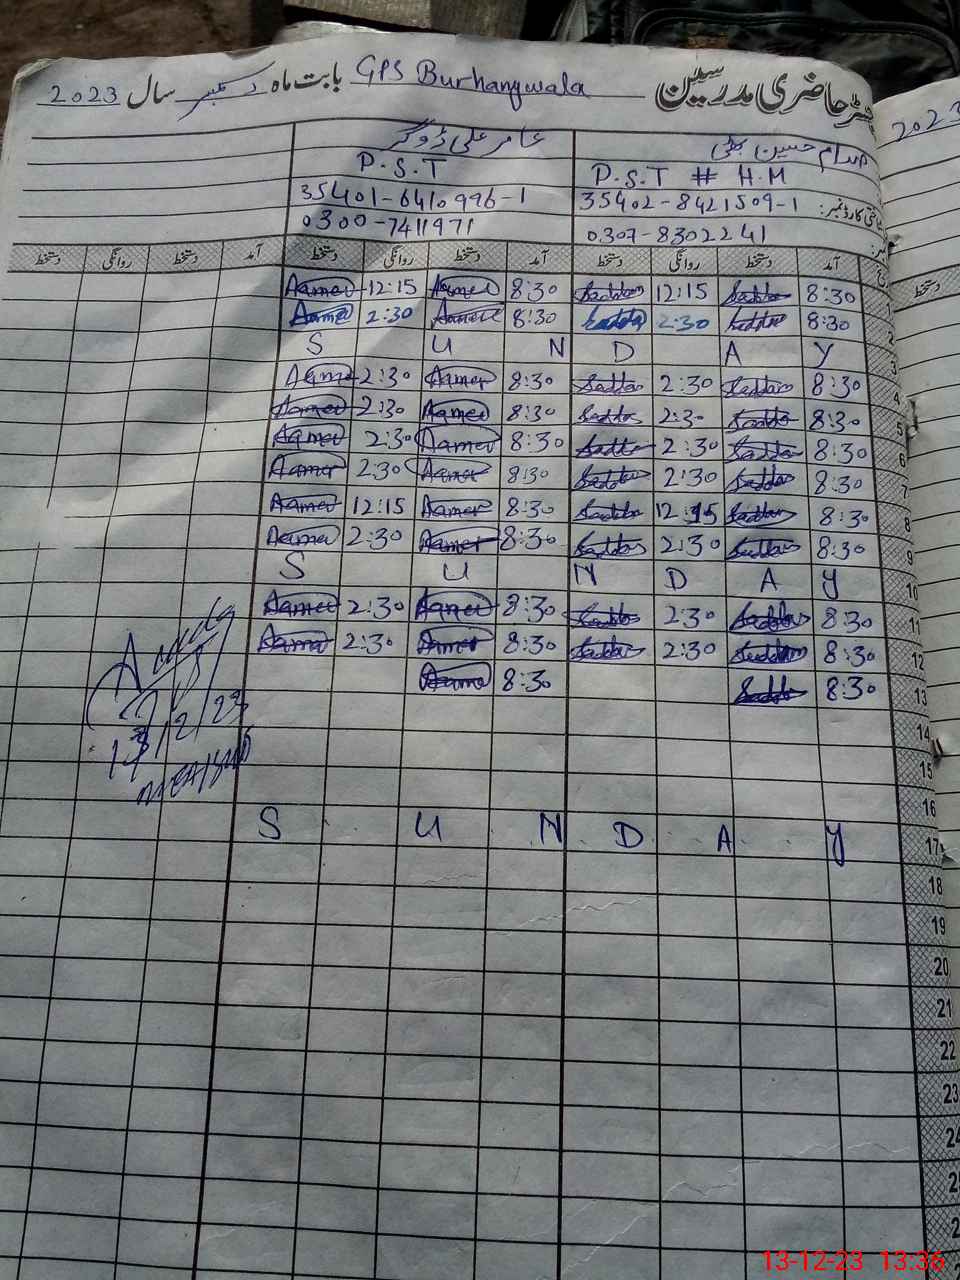 رجسٹر حاضری مدرسین GPS Burhangwala بابت ماہ دسمبر سال 2023
2023
صدام حسین بھٹی عامر علی ڈوگر
P.S.T # H.M P.S.T
35402-8421509-1 35401-6410996-1
0307-8302241 0300-7411971
آمد دستخط روانگی دستخط آمد دستخط روانگی دستخط آمد دستخط روانگی دستخط
دستخط
1 8:30 Saddam 12:15 Saddam 8:30 Aamer 12:15 Aamer
2 8:30 Saddam 2:30 Saddam 8:30 Aamer 2:30 Aamer
3 S U N D A Y
4 8:30 Saddam 2:30 Saddam 8:30 Aamer 2:30 Aamer
5 8:30 Saddam 2:30 Saddam 8:30 Aamer 2:30 Aamer
6 8:30 Saddam 2:30 Saddam 8:30 Aamer 2:30 Aamer
7 8:30 Saddam 2:30 Saddam 8:30 Aamer 2:30 Aamer
8 8:30 Saddam 12:15 Saddam 8:30 Aamer 12:15 Aamer
9 8:30 Saddam 2:30 Saddam 8:30 Aamer 2:30 Aamer
10 S U N D A Y
11 8:30 Saddam 2:30 Saddam 8:30 Aamer 2:30 Aamer
12 8:30 Saddam 2:30 Saddam 8:30 Aamer 2:30 Aamer
13 8:30 Saddam 8:30 Aamer
13/12/23
14
15
16
17 S U N D A Y
18
19
20
21
22
23
24
13-12-23 13:36